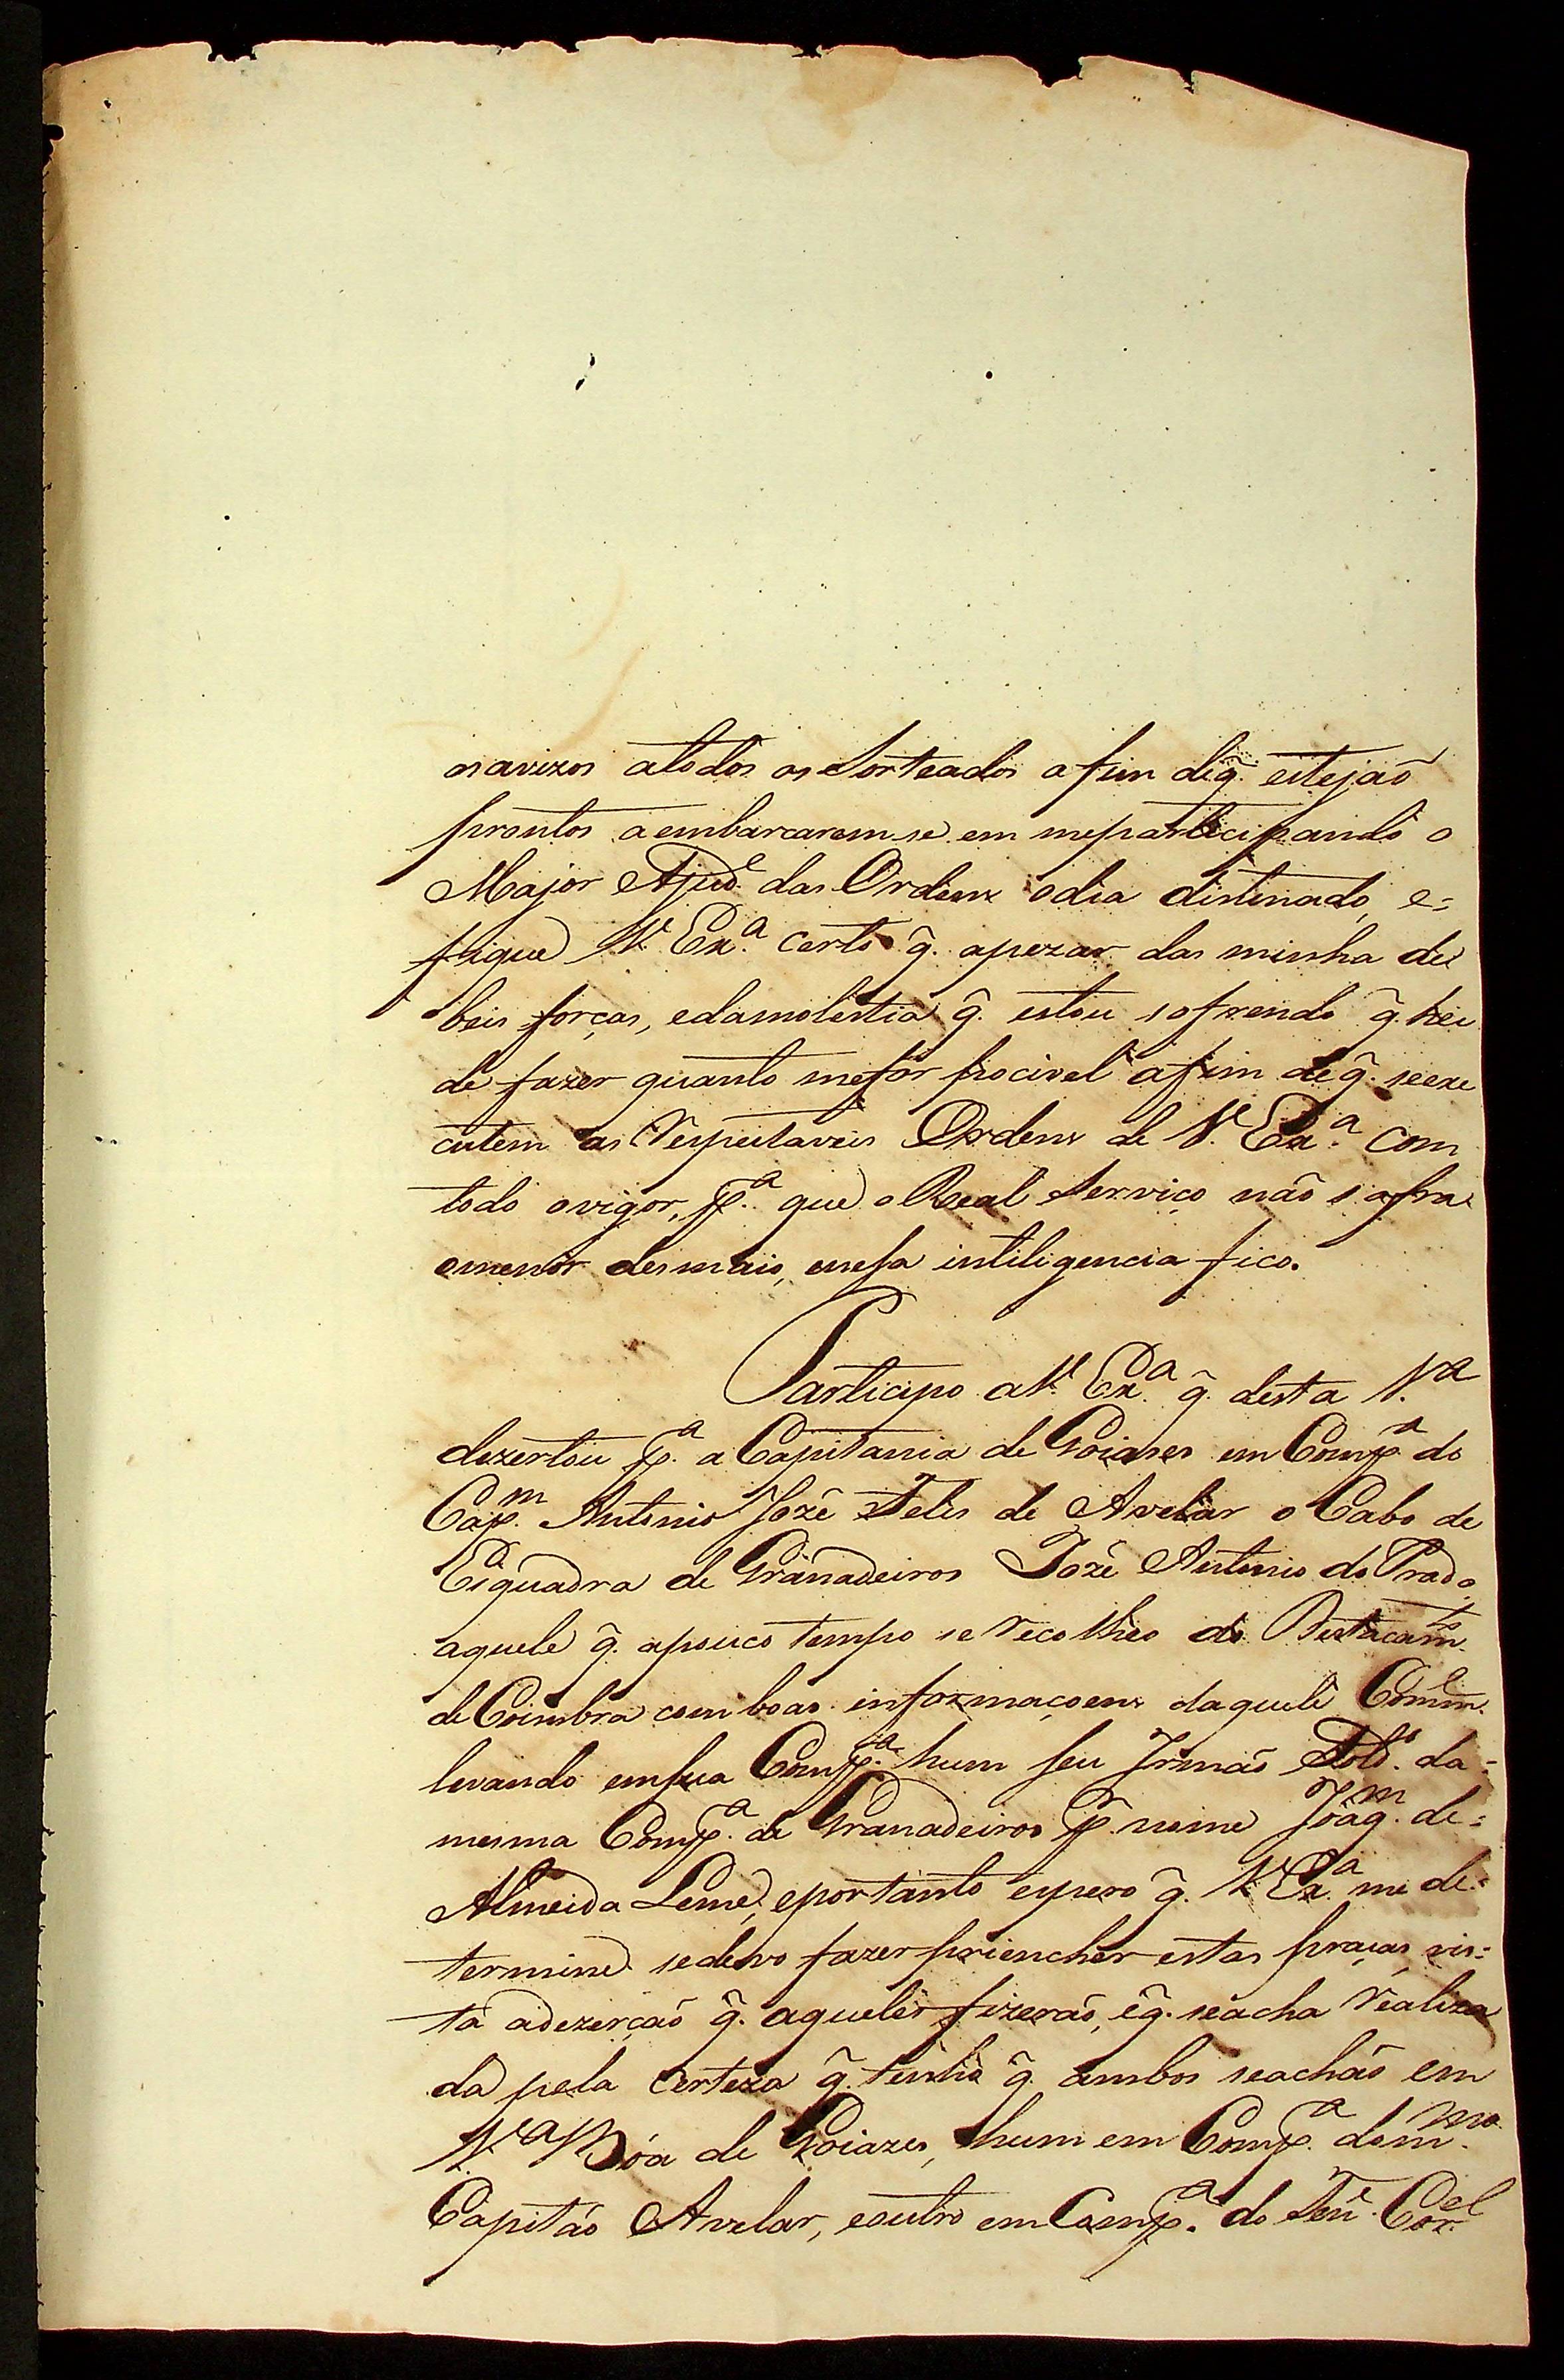 os avizos atodos os Sorteados afim deq̃. estejaõ
prontos aembarcarem-se em meparticipando o
Major Ajud.e das Ordens odia distinado, e=
fique V. Ex.a certo q̃. apezar das minha de
beis forças, edamolestia q̃. estou sofrendo q̃. hei
de fazer quanto mefor pocivel afim de q̃. seexe
cutem as Respeitaveis Ordens de V. Ex.a com
todo ovigor, p.a que o Real Serviço não sofra
omenor desmaio, enesa intiligencia fico.
Participo aV. Ex.a q̃. desta V.a
dezertou p.a a Capitania de Goiases em Comp.a do
Cap.m Antonio Jozé Teles de Avelar o Cabo de
Esquadra de Granadeiros Jozé Antonio do Prado,
aquele q̃. apouco tempo se recolheo do Destacam.to
de Coimbra com boas informaçoens daquele Comm.e
levando emsua Comp.a hum seu Irmaõ Sold.o da=
mesma Comp.a de Granadeiros p.r nome Joaq.m de=
Almeida Leme, eportanto espero q̃. V. Ex.a me de=
termine sedevo fazer priencher estas praças, vis=
ta adezerçaõ q̃. aqueles fizeraõ, eq̃. seacha realiza
da pela Certeza q̃. tenho q̃. ambos seachaõ em
V.a Bóa de Goiazes, hum em Comp.a dom.mo
Capitaõ Avelar, eoutro em Comp.a do Ten.e Cor.el